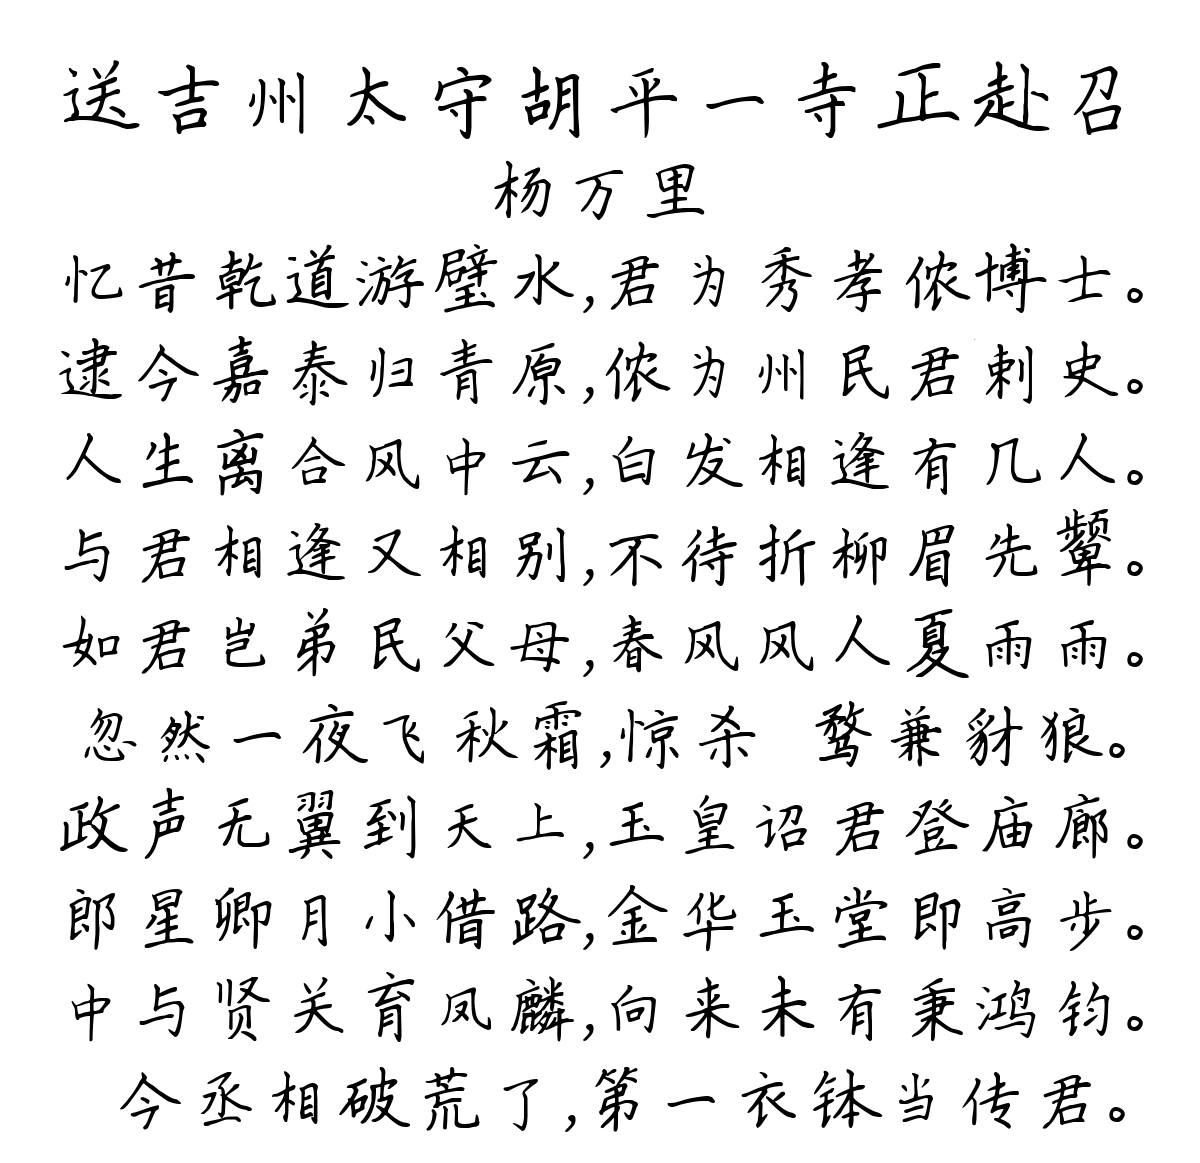 送吉州太守胡平一寺正赴召
杨万里
忆昔乾道游璧水,君为秀孝侬博士。
逮今嘉泰归青原,侬为州民君刺史。
人生离合风中云,白发相逢有几人。
与君相逢又相别,不待折柳眉先颦。
如君岂弟民父母,春风风人夏雨雨。
忽然一夜飞秋霜,惊杀 鹜兼豺狼。
政声无翼到天上,玉皇诏君登庙廊。
郎星卿月小借路,金华玉堂即高步。
中与贤关育凤麟,向来未有秉鸿钧。
今丞相破荒了,第一衣钵当传君。